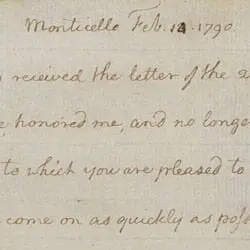 Monticello Feb. 14. 1790.
recieved the letter of the 2
honored me, and no longe
to which you are pleased to
come on as quickly as poss